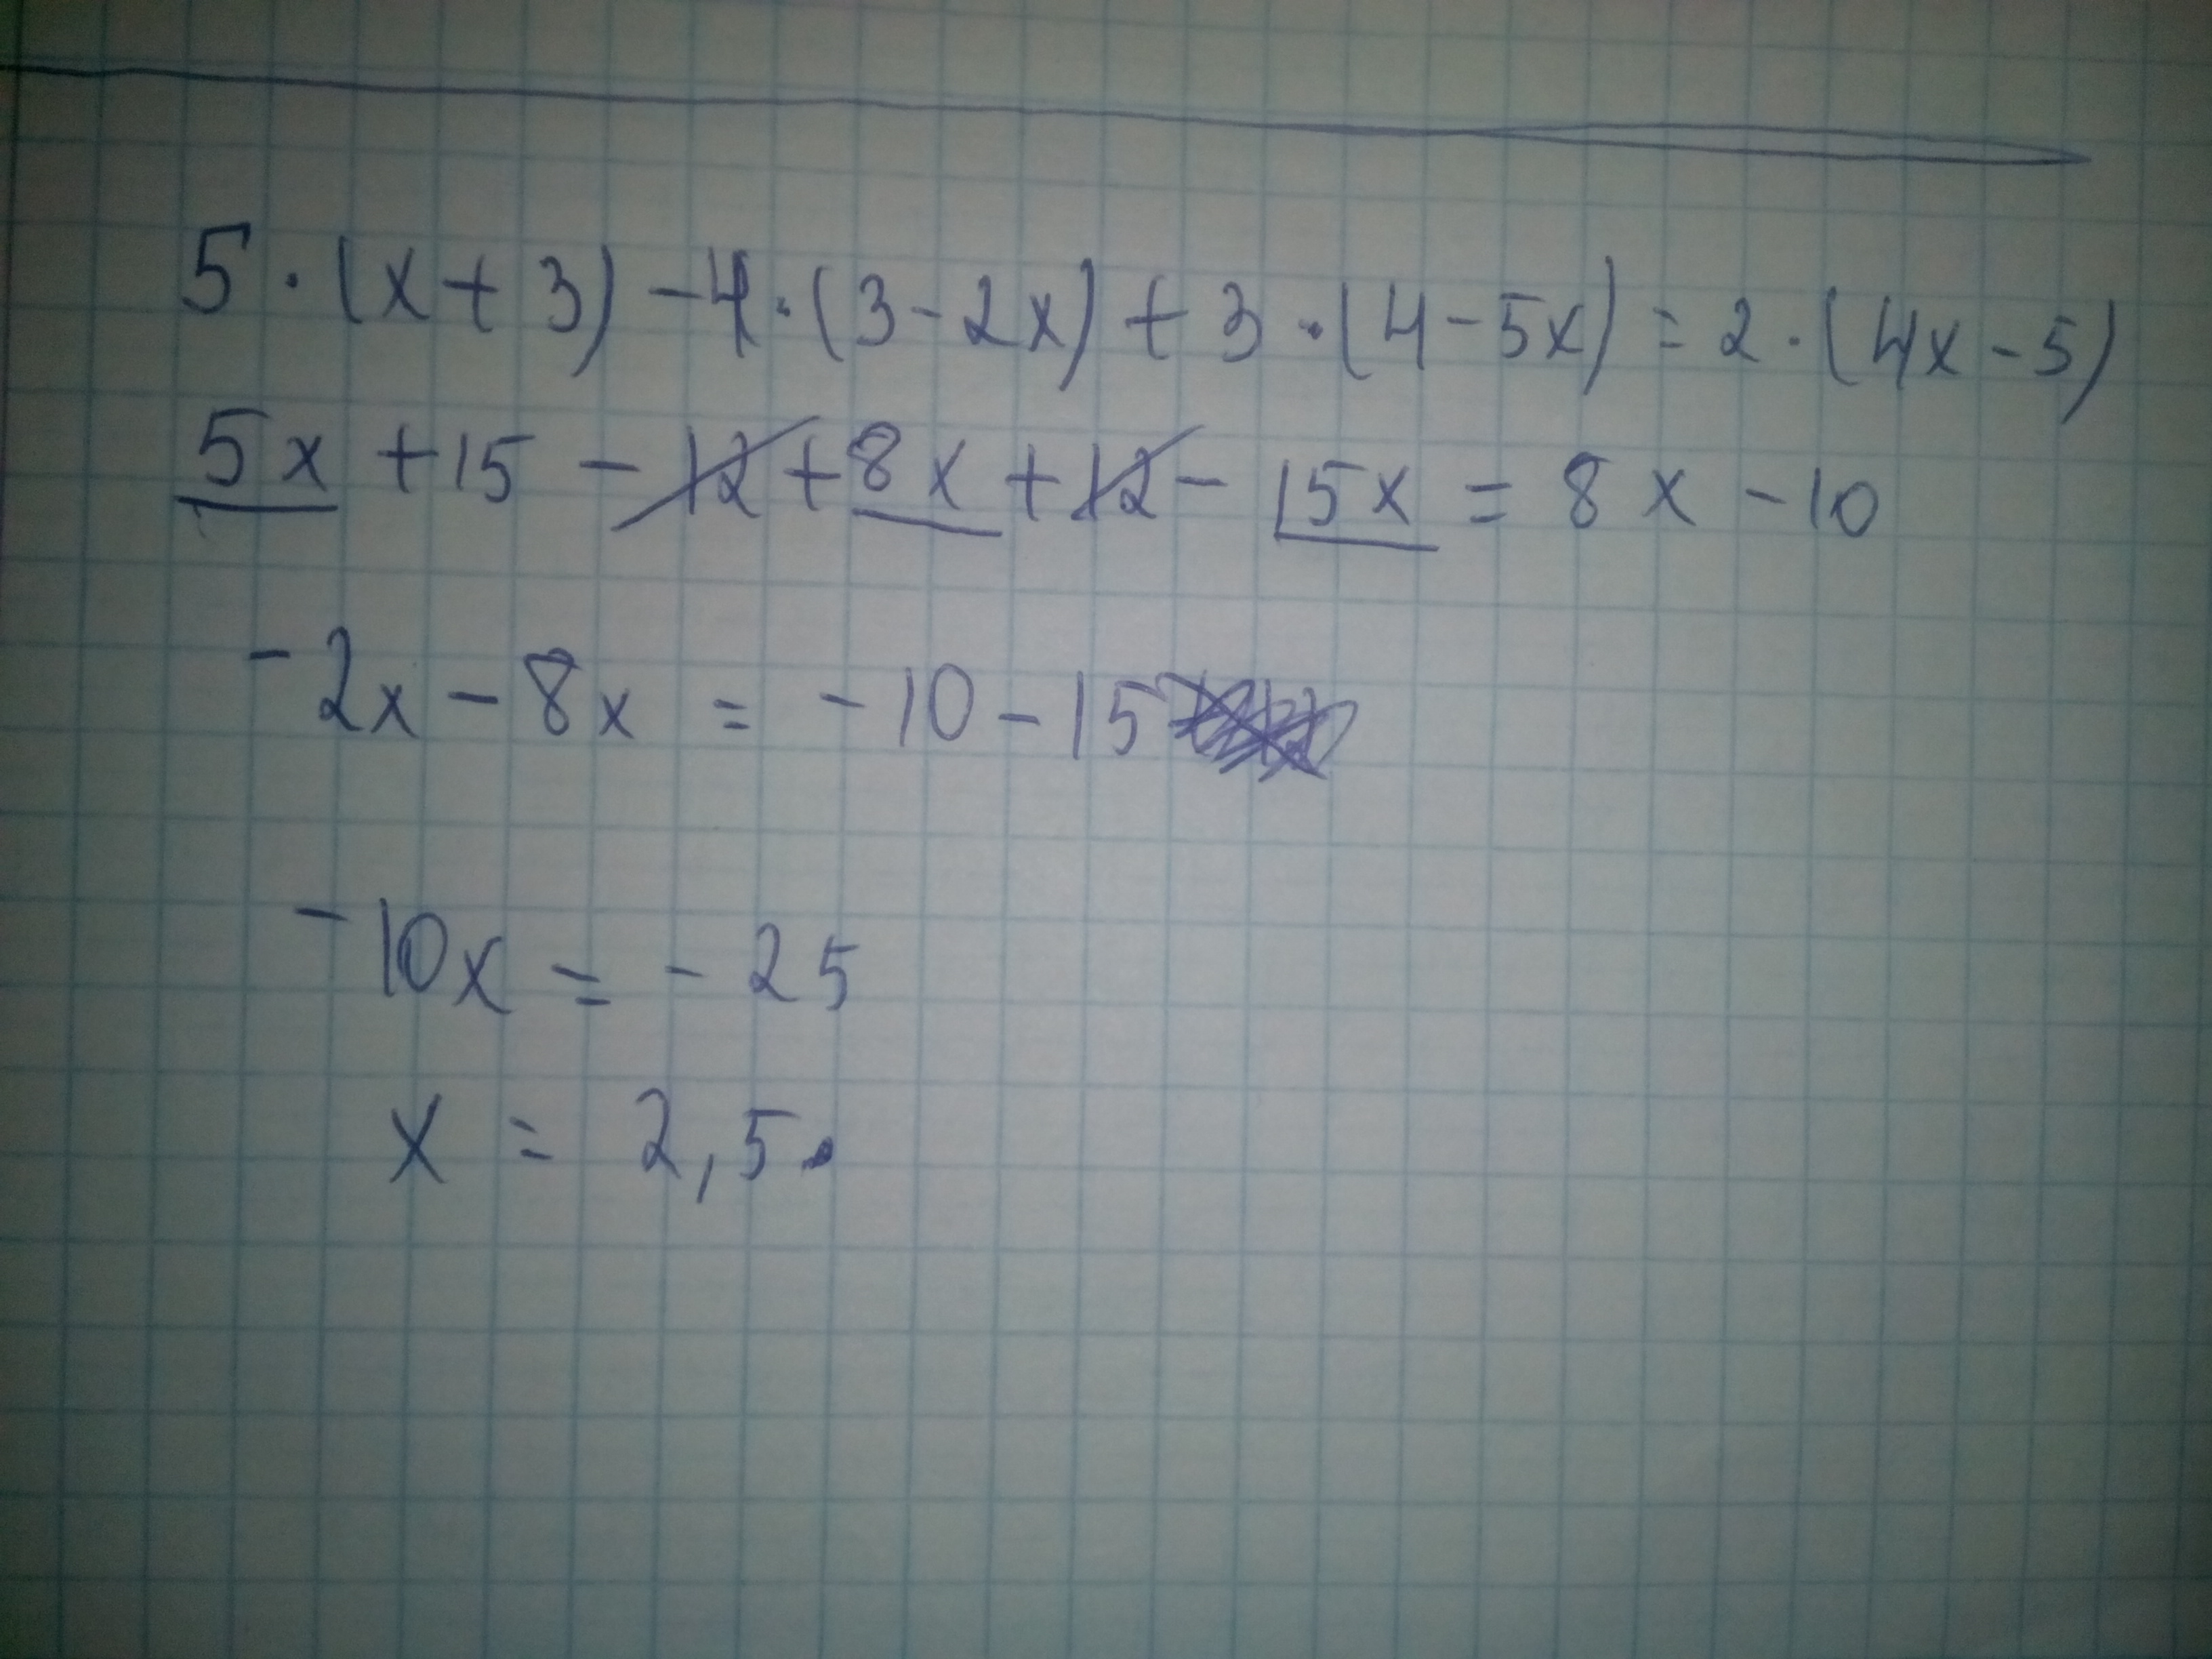 5 · (x + 3) - 4 · (3 - 2x) + 3 · (4 - 5x) = 2 · (4x - 5)
5x + 15 - 12 + 8x + 12 - 15x = 8x - 10
-2x - 8x = -10 - 15
-10x = -25
x = 2,5.